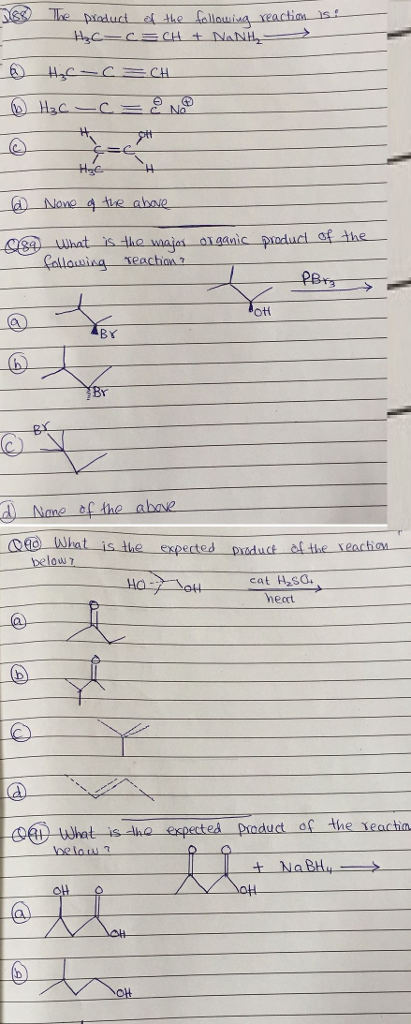 Q88 The product of the following reaction is:
H₃C—C≡CH + NaNH₂ →
(a) H₃C—C≡CH
(b) H₃C—C≡C⊖ Na⊕
(c) H OH
C=C
H₃C H
(d) None of the above
Q89) What is the major organic product of the
following reaction?
PBr₃
OH
(a)
Br
(b)
Br
Br
(c)
(d) None of the above
Q90) What is the expected product of the reaction
below?
HO OH cat H₂SO₄
heat
(a) O
(b) O
(c)
(d)
Q91) What is the expected product of the reaction
below?
O O
OH + NaBH₄ →
(a) OH O
OH
(b)
OH